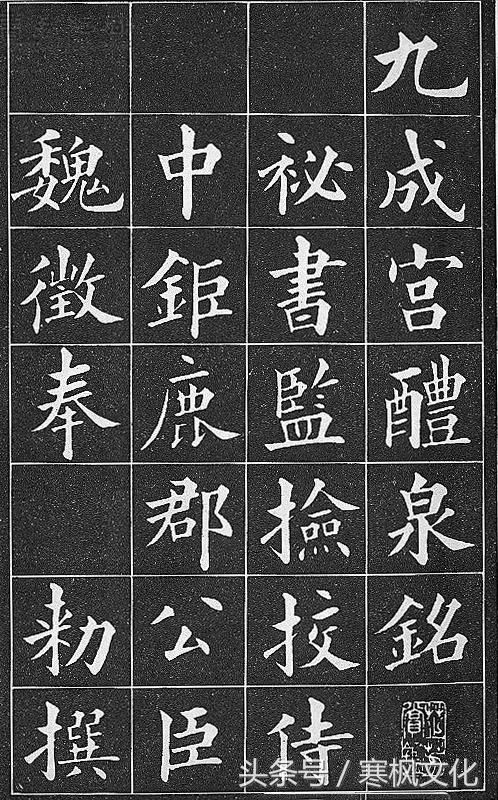 九成宫醴泉銘
祕書監撿挍侍
中鉅鹿郡公臣
魏徵奉 勑撰
头条号 / 寒枫文化